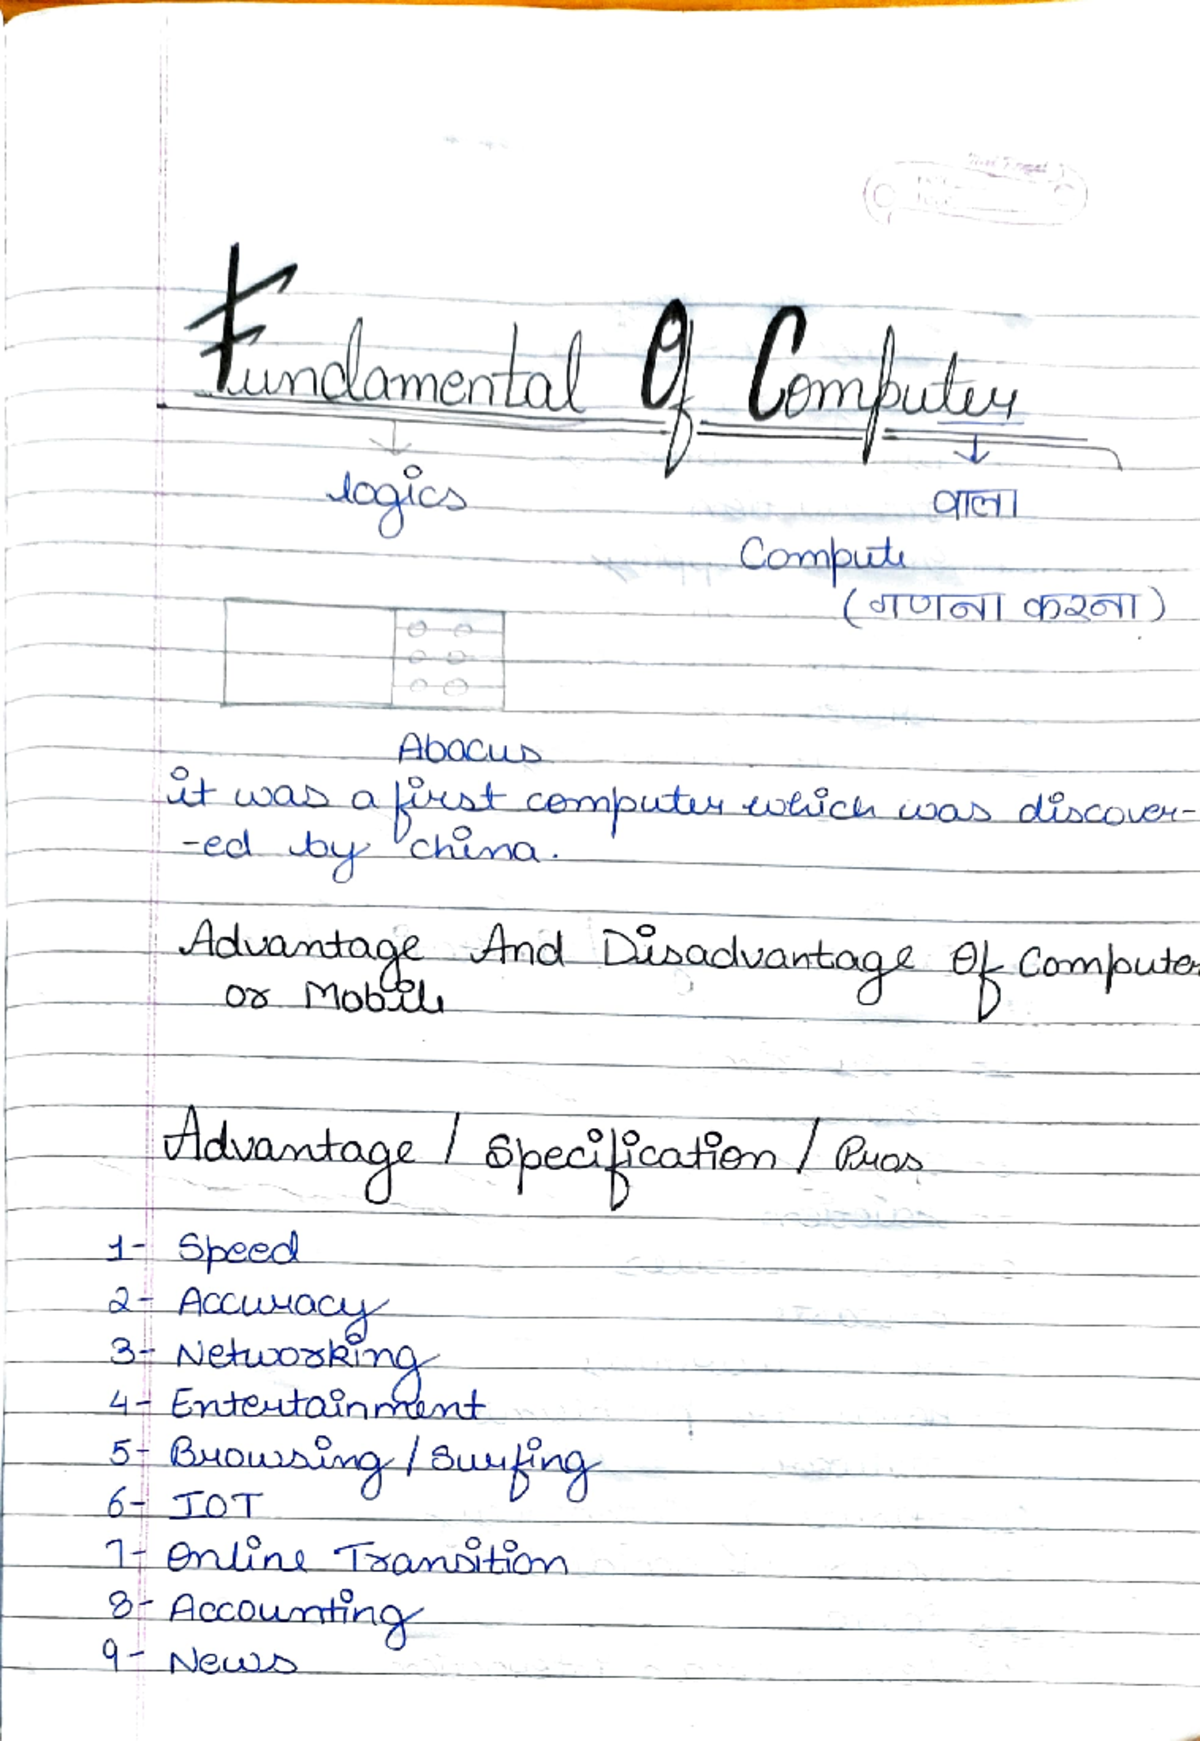 Fundamental Of Computer
logics
वाला
Compute
(गणना करना)
Abacus
it was a first computer which was discover-
-ed by china.
Advantage And Disadvantage Of Computer
or Mobile
Advantage / Specification / Pros
1- Speed
2- Accuracy
3- Networking
4- Entertainment
5- Browsing / Surfing
6- IOT
7- Online Transition
8- Accounting
9- News